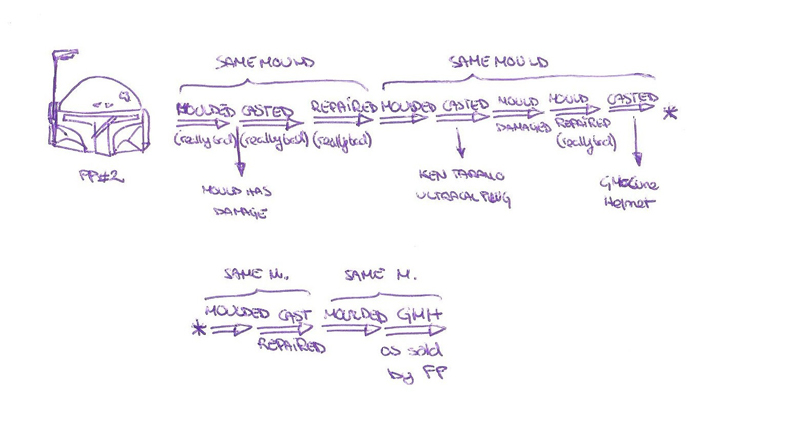 SAME MOULD
SAME MOULD
MOULDED CASTED REPAIRED MOULDED CASTED MOULD MOULD CASTED *
(really bad) (really bad) (really bad) DAMAGED REPAIRED
(really bad)
PP#2
MOULD HAS
DAMAGE
KEN TARANO
ULTRACAL PLUG
Helmet
SAME M.
SAME M.
* MOULDED CAST MOULDED GMH
REPAIRED
as sold
by FP